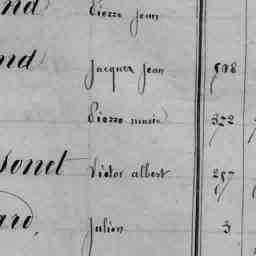 nd Pierre Jean
nd Jacques Jean 508
Pierre marie 322
sonet Victor albert 257
ard, Julien 3